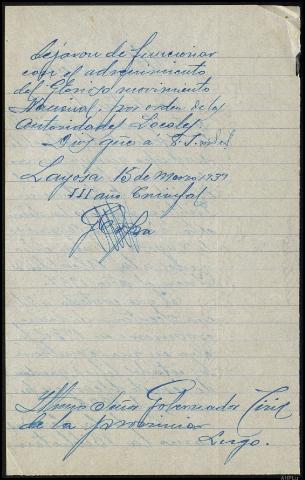 dejaron de funcionar
con el advenimiento
del Glorioso movimiento
Nacional, por orden de las
Autoridades Locales.
Dios que a V.S. m. a.
Layosa 15 de Marzo 1939
III año Triunfal
Ilmo Señor Gobernador Civil
de la provincia
Lugo.